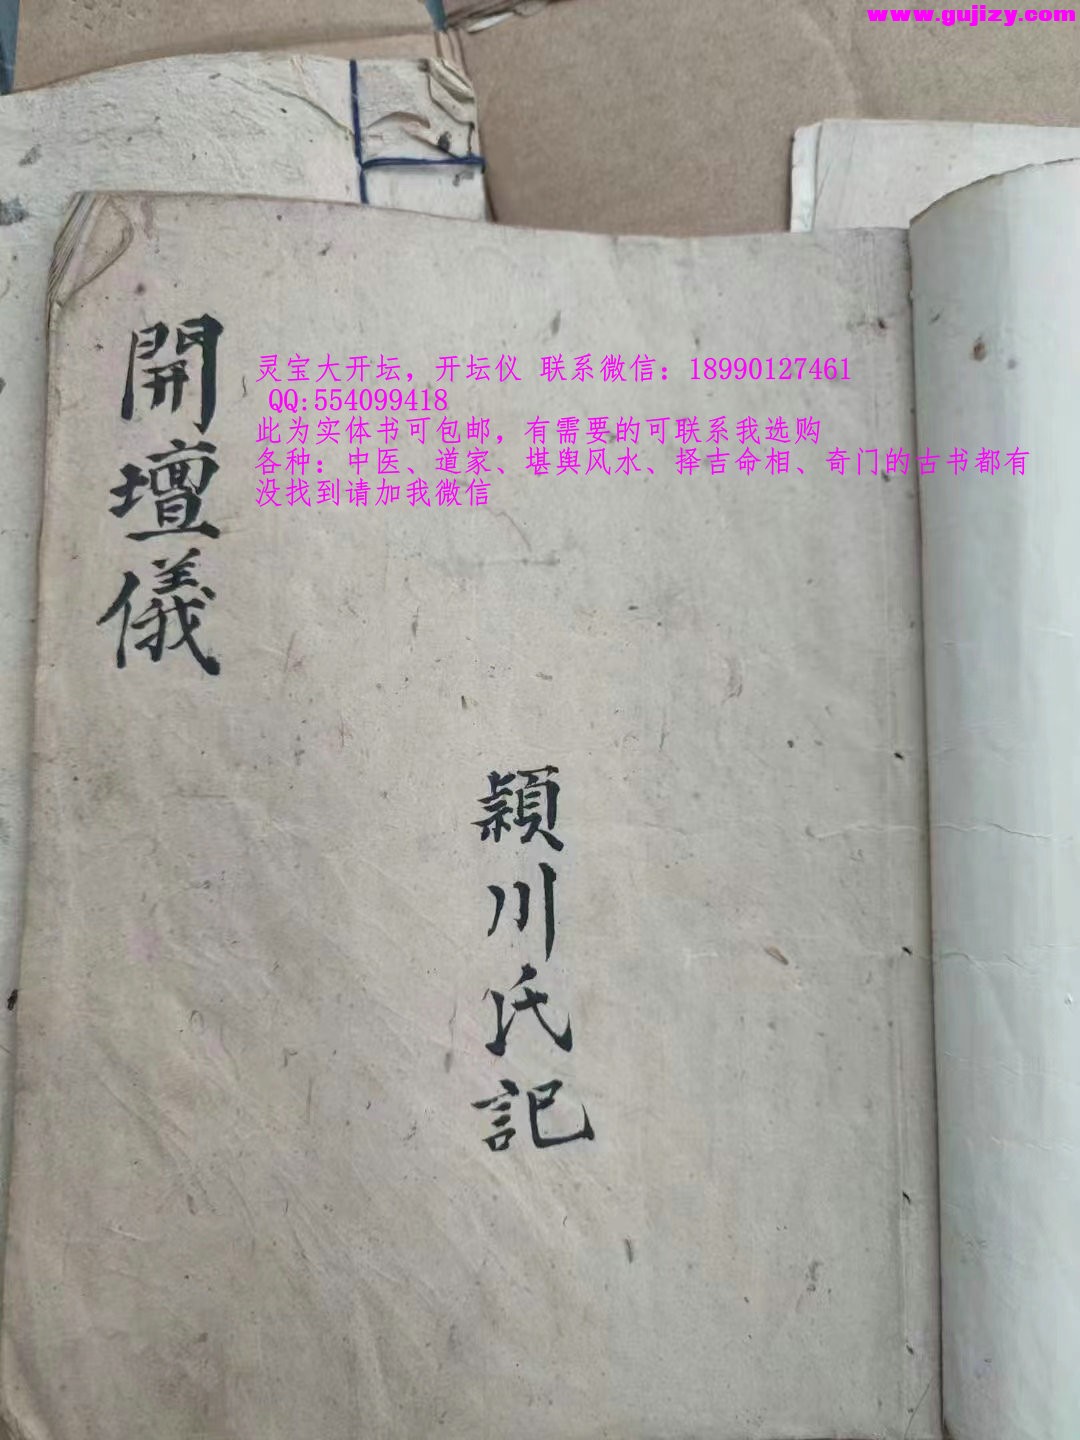 www.gujizy.com
開壇儀
灵宝大开坛，开坛仪 联系微信：18990127461
QQ:554099418
此为实体书可包邮，有需要的可联系我选购
各种：中医、道家、堪舆风水、择吉命相、奇门的古书都有
没找到请加我微信
穎川氏記